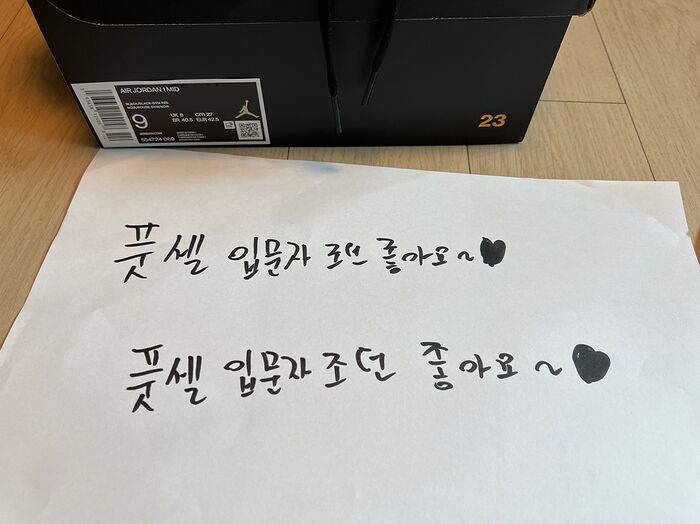 AIR JORDAN 1 MID
BLACK/BLACK-GYM RED
NOIR/ROUGE GYM/NOIR
9
UK 8 CM 27
BR 40.5 EUR 42.5
554724 069
23
풋셀 입문자 조던 좋아요~♥
풋셀 입문자 조던 좋아요~♥